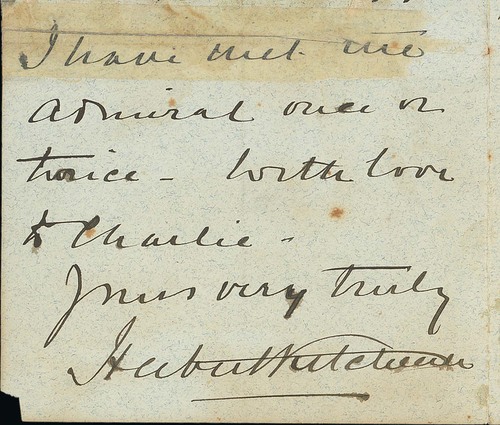 I have met the
Admiral once or
twice - With love
to Charlie -
Yours very truly
Herbert Kitchener